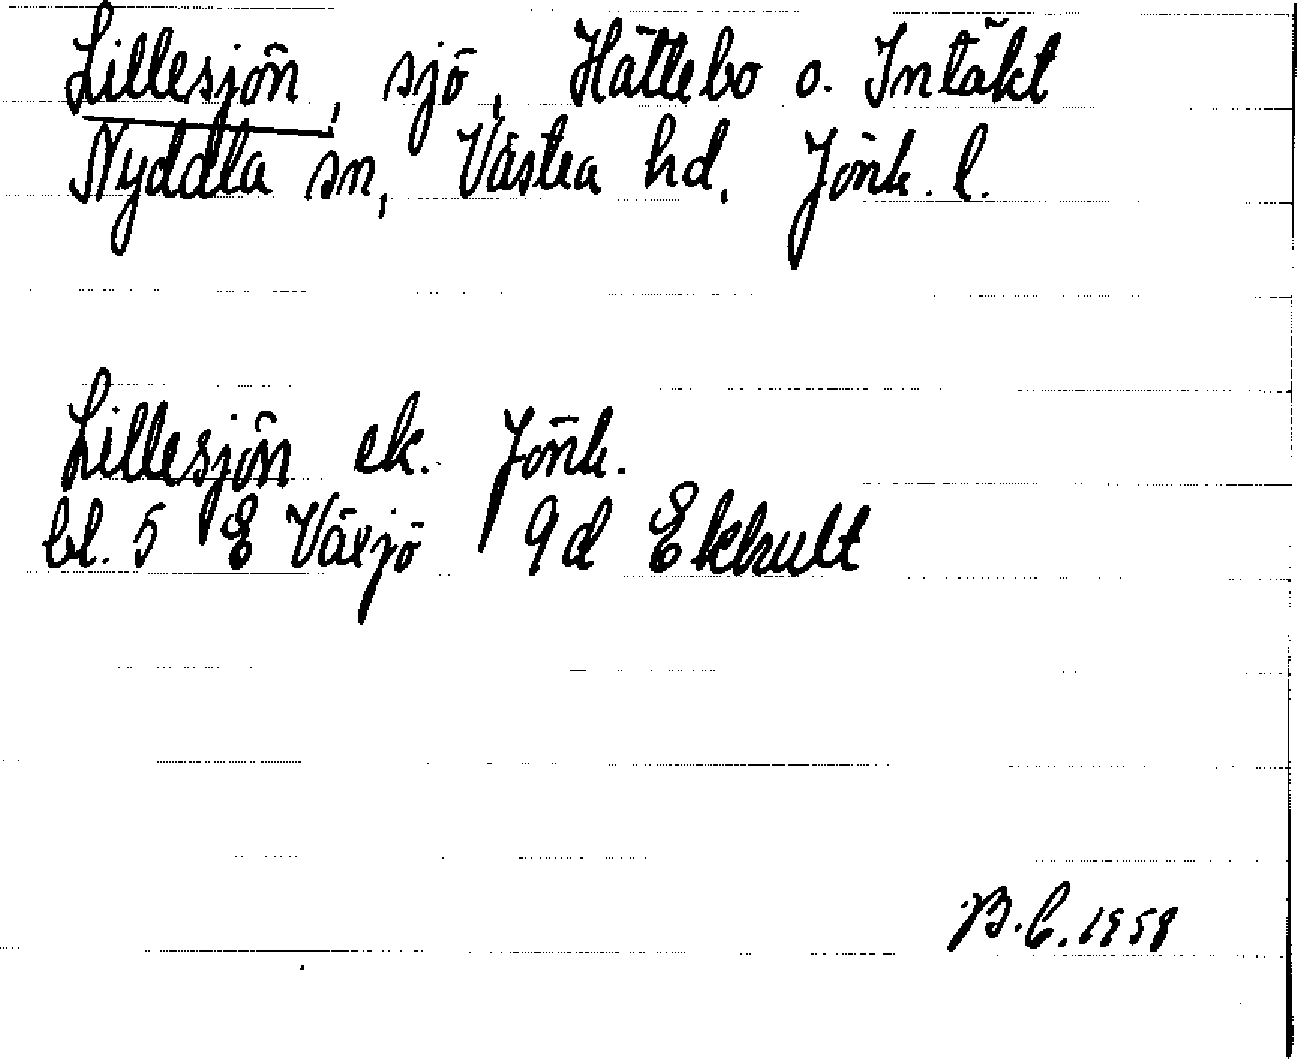 Lillesjön, sjö, Hättebo o. Intäkt
Nydala sn, Västra hd, Jönk. l.
Lillesjön ek. Jönk.
bl. 5 E Växjö 9d Ekhult
B.C. 1958